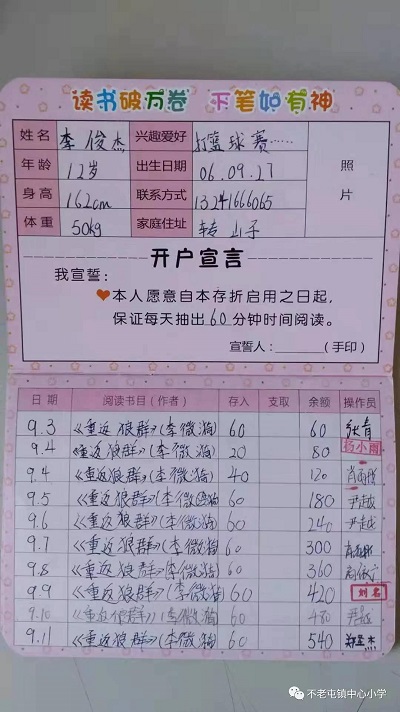 读书破万卷 下笔如有神
姓名 李俊杰 兴趣爱好 打篮球赛…… 照
年龄 12岁 出生日期 06.09.27
身高 162cm 联系方式 13241666065 片
体重 50kg 家庭住址 转山子
开户宣言
我宣誓：
本人愿意自本存折启用之日起，
保证每天抽出60分钟时间阅读。
宣誓人：______（手印）
日期 阅读书目（作者） 存入 支取 余额 操作员
9.3 《重返狼群》(李微漪) 60 60 张青
9.4 《重返狼群》(李微漪) 20 80 杨小丽
9.4 《重返狼群》(李微漪) 40 120
9.5 《重返狼群》(李微漪) 60 180 尹越
9.6 《重返狼群》(李微漪) 60 240 尹越
9.7 《重返狼群》(李微漪) 60 300
9.8 《重返狼群》(李微漪) 60 360
9.9 《重返狼群》(李微漪) 60 420 刘名
9.10 《重返狼群》(李微漪) 60 480
9.11 《重返狼群》(李微漪) 60 540 郑圣杰
不老屯镇中心小学